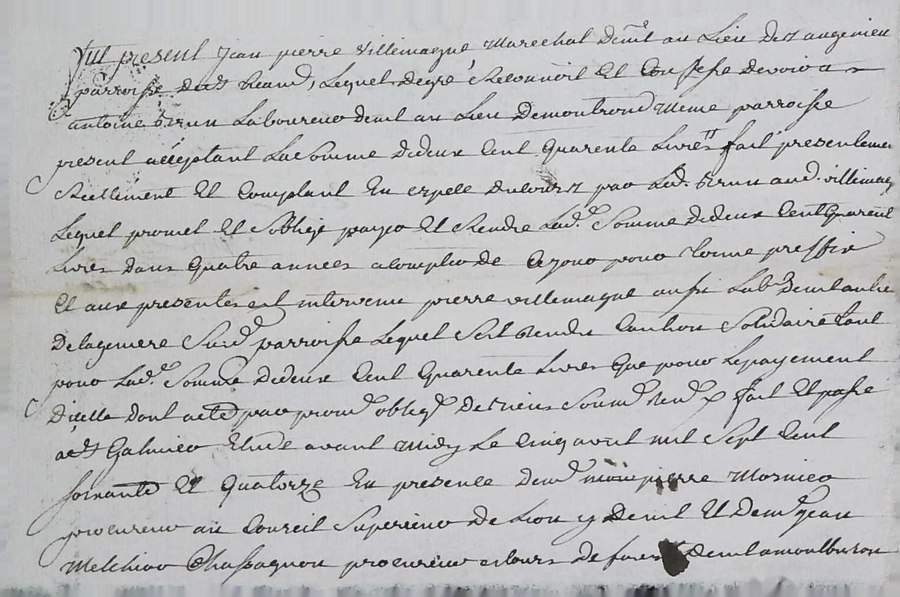 fut present Jean pierre Villemagne Marechal demt au Lieu de
parroisse dudt Lequel degré Reconnoit Et Confesse devoir a
antoine brun Laboureur demt au Lieu demontrond Meme parroisse
present acceptant La somme dedeux Cent quarente Livres fait presentement
Reellement Et Comptant En espece ducours par Led. brun aud. villemag
Lequel promet Et soblige payer Et Rendre Lad.e Somme dedeux Cent quarent
Livres dans quatre années acompter de Cejour pour terme preffix
Et aux presentes est intervenu pierre villemagne aussi Lab.r demt au lieu
Delagemere Susd.e parroisse Lequel Sest Rendu Caution Solidaire tant
pour Lad.e Somme dedeux Cent quarente Livres que pour Lepayement
Dicelle dont acte par prom.e oblig.e De biens Soum.e Ren.e fait Et passé
a St Galmier Etude avant Midy Le Cinq avril mil Sept Cent
soixante Et quatorze En presence de me pierre
procureur au Conseil Superieur De Lion y Demt Et de me Jean
Melchior Chassagnon procureur es Cours de forest